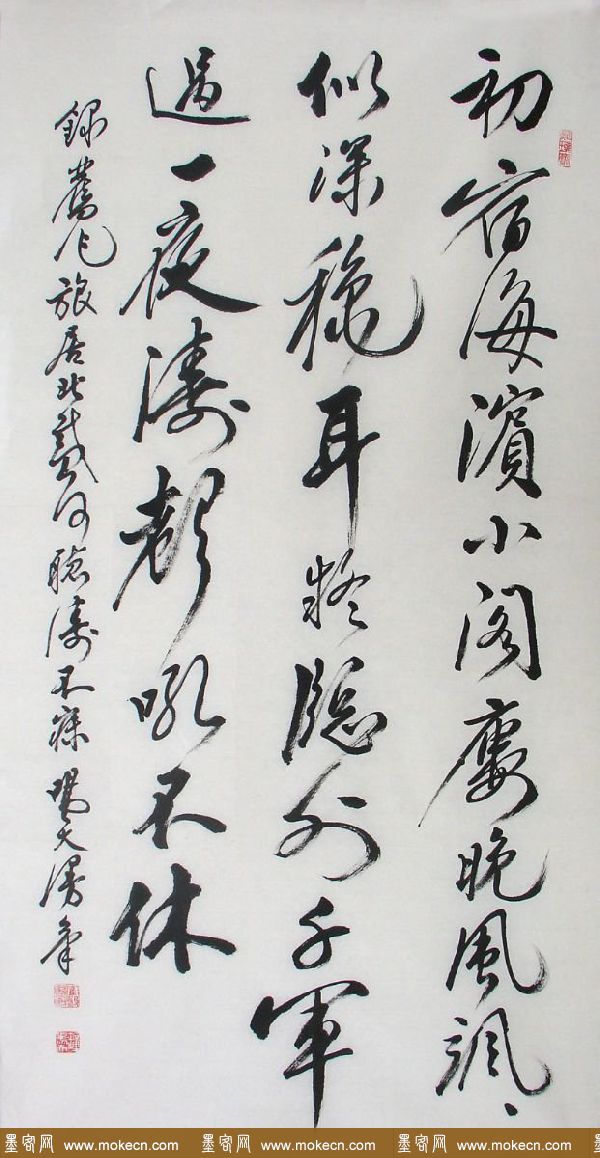 初宿海濱小閣廔晚風颯、
似深穐耳疑牕外千軍
過一夜濤聲吼不休
錄舊作旅居北戴河聽濤不寐
墨客网 www.mokecn.com 墨客网 www.mokecn.com 墨客网 www.mokecn.com